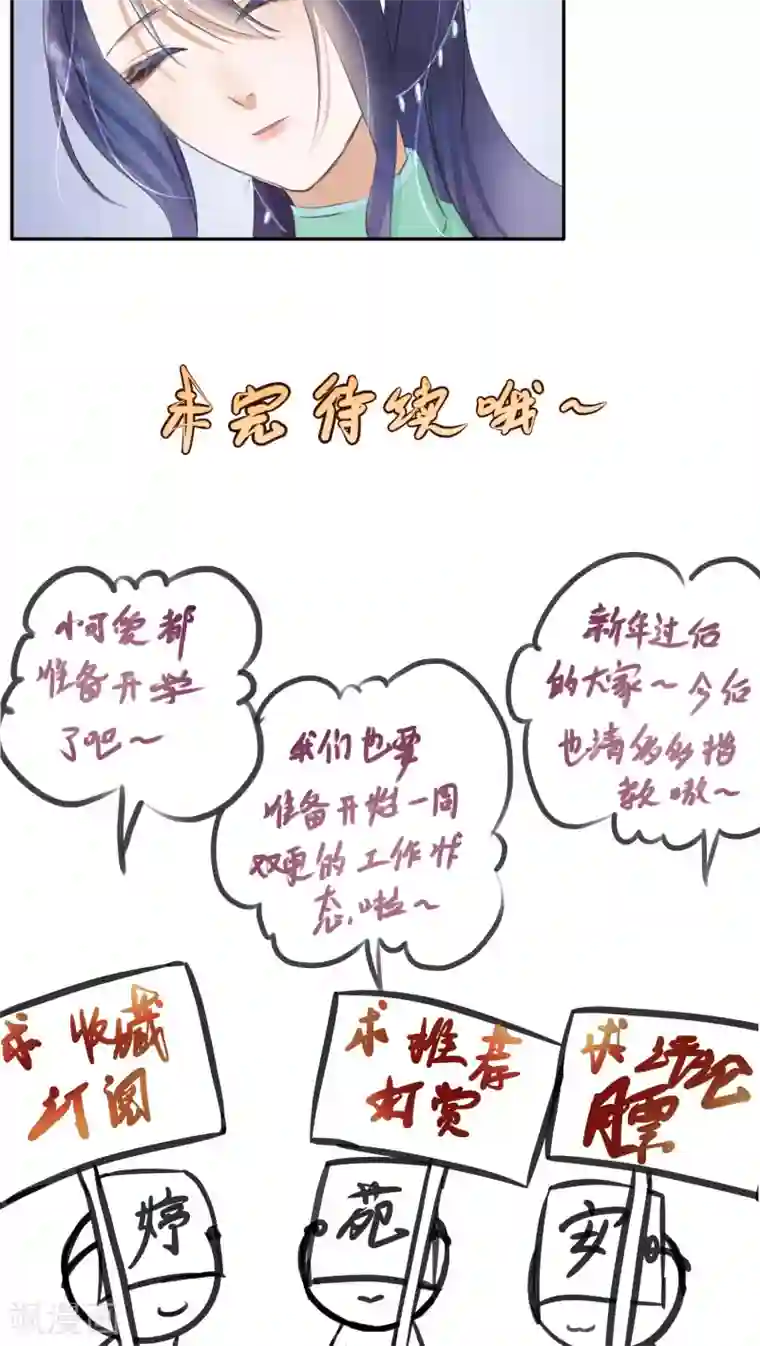 未完待续哦～
小可爱都
准备开学
了吧～
我们也要
准备开始一周
双更的工作状
态啦～
新年过后
的大家～今后
也请多多指
教嗷～
求收藏
订阅
求推荐
打赏
求评论
月票
婷
苑
安
飒漫画